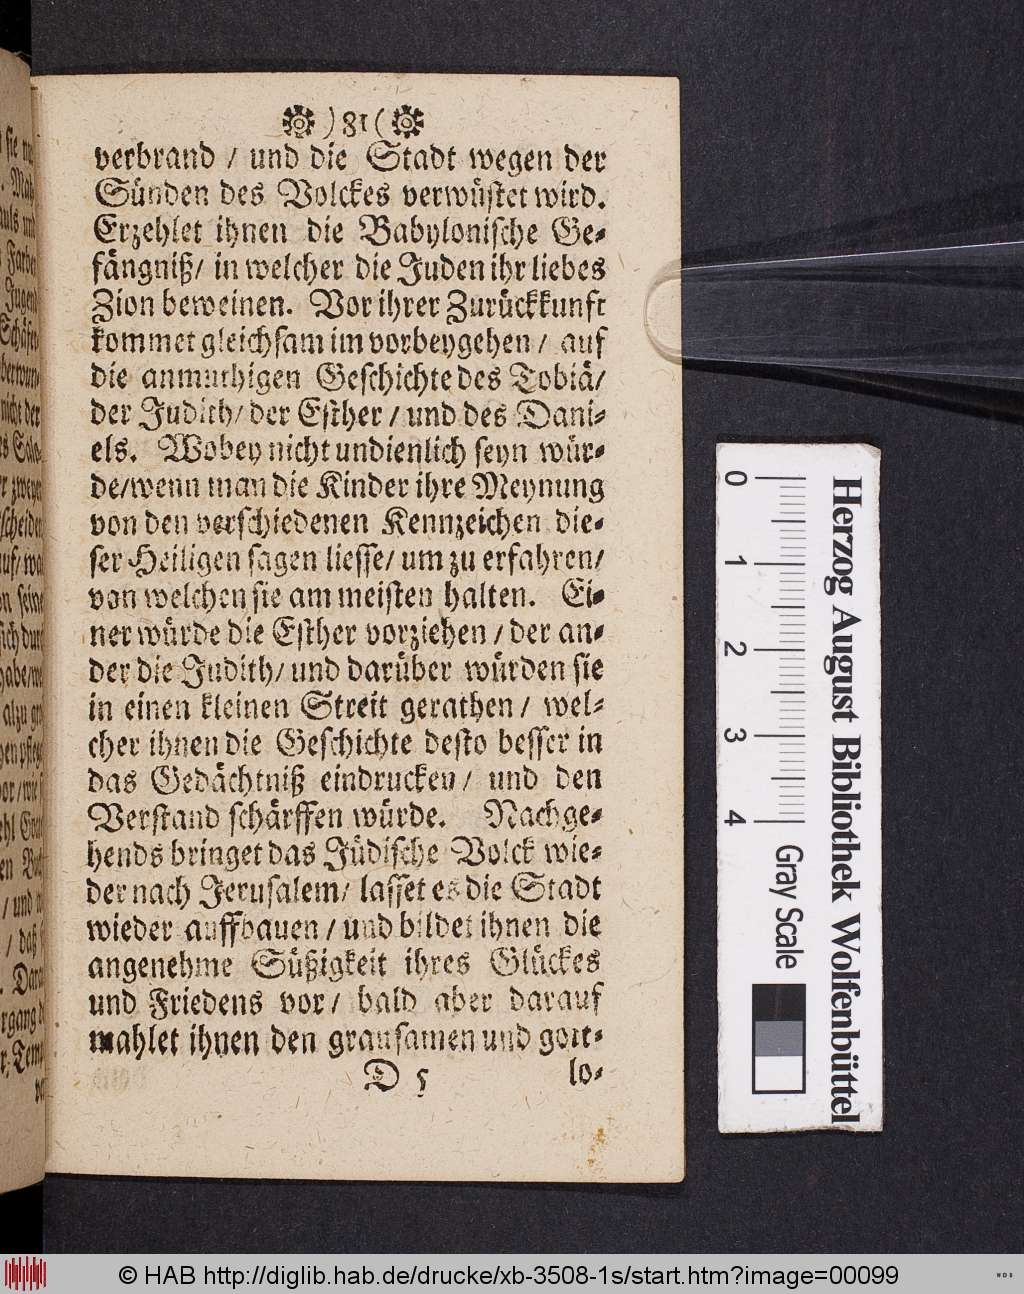 ) 81 (
verbrand / und die Stadt wegen der
Sünden des Volckes verwüstet wird.
Erzehlet ihnen die Babylonische Ge-
fängniß/ in welcher die Juden ihr liebes
Zion beweinen. Vor ihrer Zurückkunft
kommet gleichsam im vorbeygehen / auf
die anmuthigen Geschichte des Tobiä/
der Judith/ der Esther / und des Dani-
els. Wobey nicht undienlich seyn wür-
de/wenn man die Kinder ihre Meynung
von den verschiedenen Kennzeichen die-
ser Heiligen sagen liesse/ um zu erfahren/
von welchen sie am meisten halten. Ei-
ner würde die Esther vorziehen / der an-
der die Judith/ und darüber würden sie
in einen kleinen Streit gerathen / wel-
cher ihnen die Geschichte desto besser in
das Gedächtniß eindrucken / und den
Verstand schärffen würde. Nachge-
hends bringet das Jüdische Volck wie-
der nach Jerusalem/ lasset es die Stadt
wieder auffbauen / und bildet ihnen die
angenehme Süßigkeit ihres Glückes
und Friedens vor / bald aber darauf
mahlet ihnen den grausamen und gott-
D 5 lo-
0 1 2 3 4 Gray Scale
Herzog August Bibliothek Wolfenbüttel
© HAB http://diglib.hab.de/drucke/xb-3508-1s/start.htm?image=00099